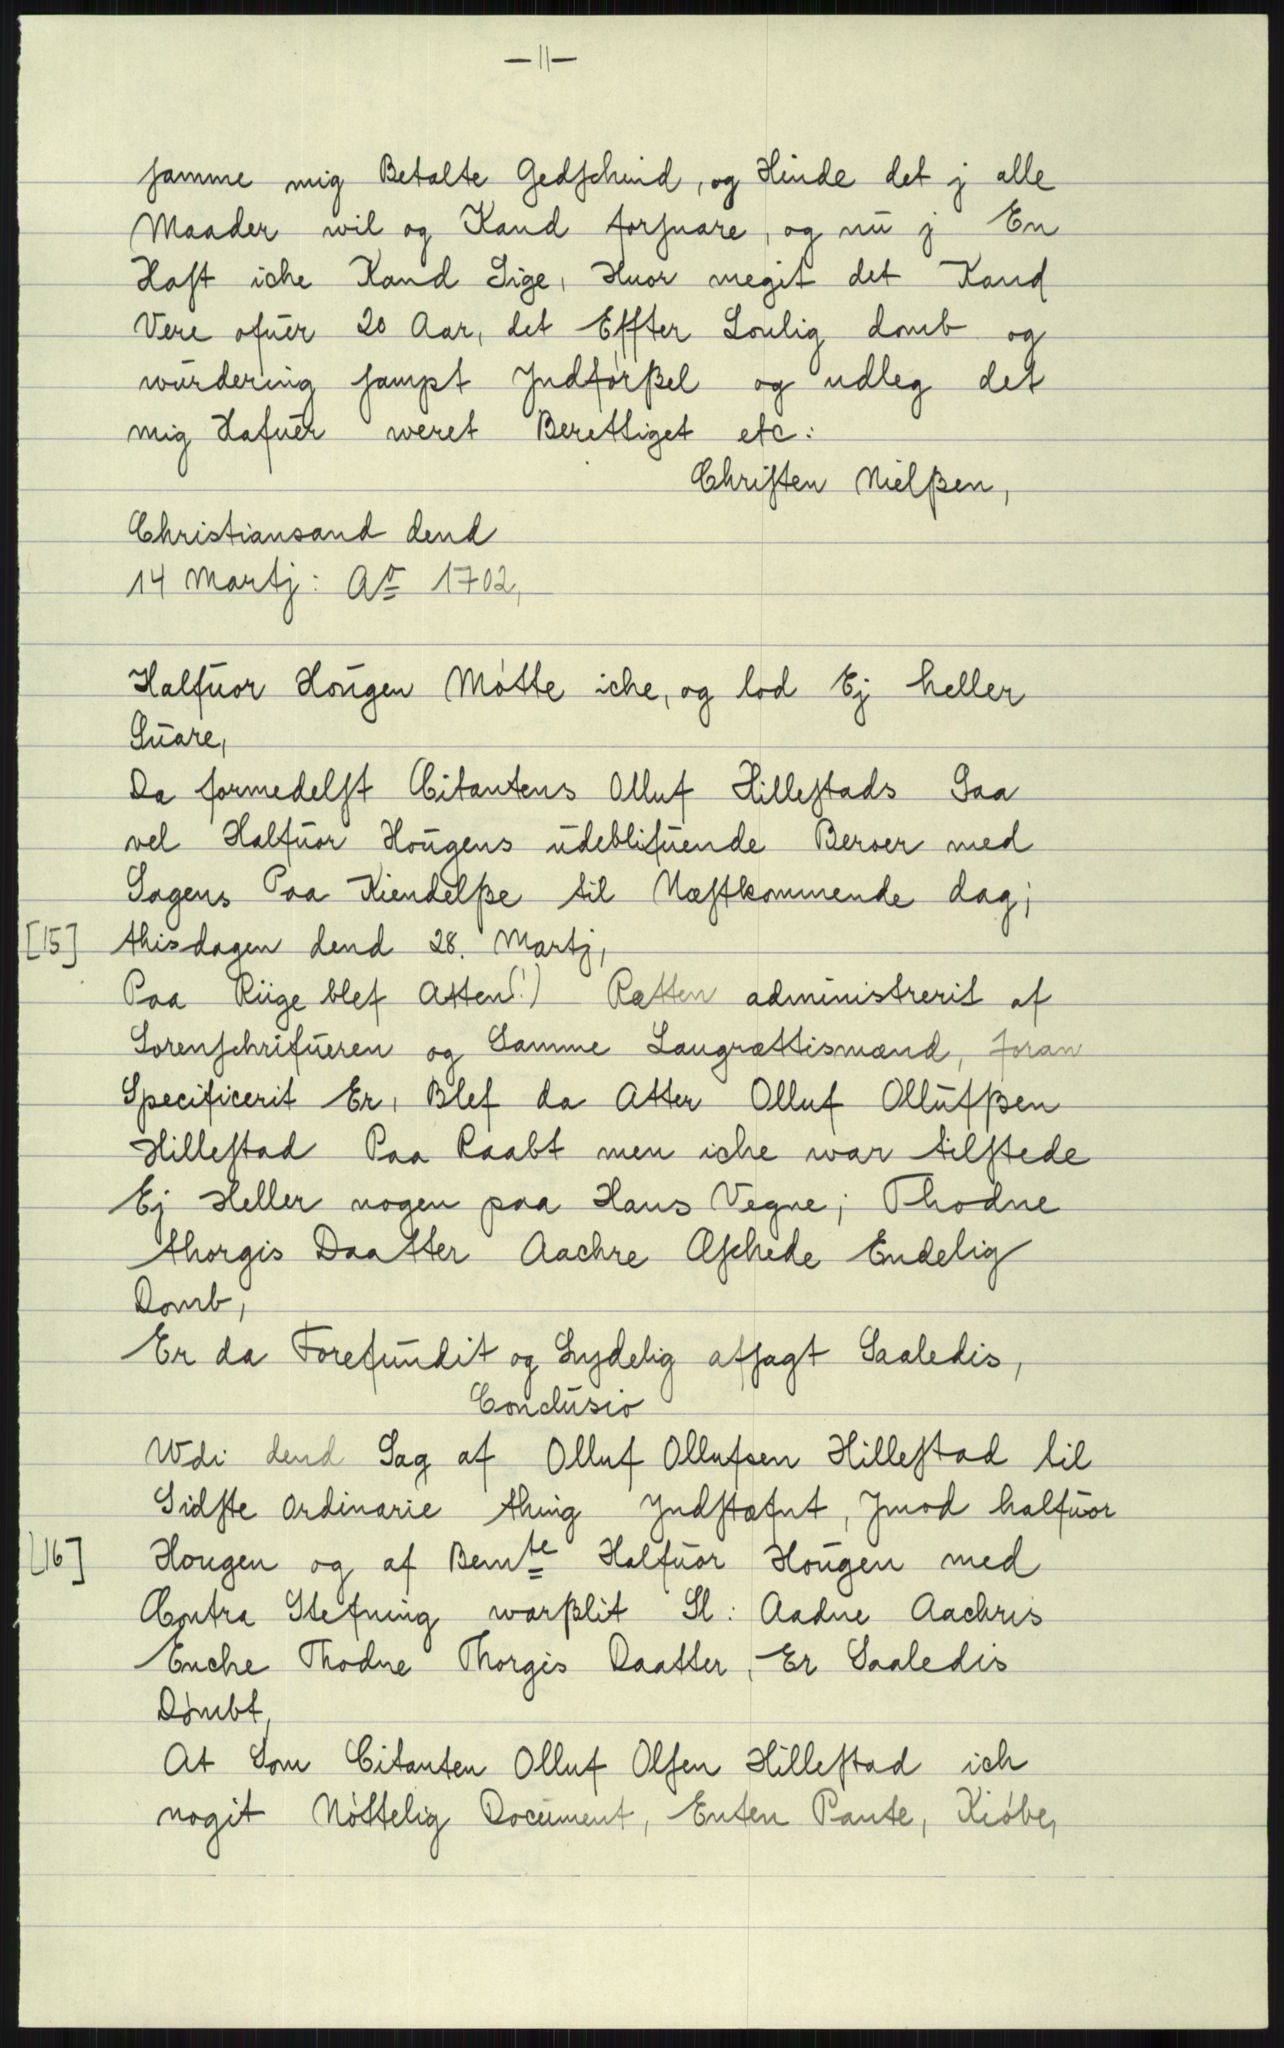 — 11 —
samme mig Betalte Gedschind, og Hinde det j alle
Maader wil og Kand forsuare, og nu j En
Hast iche Kand Sige, Huor megit det Kand
Vere ofuer 20 Aar, det Effter Loulig domb og
wurdering sampt Jndførßel og udleg det
mig Hafuer weret Berettiget etc:
Christen Nielßen,
Christiansand dend
14 Martj: Aº 1702,
Halfuor Hougen Møtte iche, og lod Ej heller
Suare,
Da formedelst Citantens Olluf Hillestads Saa
vel Halfuor Hougens udeblifuende Beroer med
Sagens Paa Kiendelße til Næstkommende dag;
[15] thisdagen dend 28. Martj,
Paa Riige blef Atten(!) Rætten administrerit af
Sorenschrifueren og Samme Laugrættismænd, foran
Specificerit Er, Blef da Atter Olluf Ollufßen
Hillestad Paa Raabt men iche war tilstede
Ej Heller nogen paa Hans Vegne; Thodne
thorgis Daatter Aachre Æschede Endelig
Domb,
Er da Forefundit og Lydelig afsagt Saaledis,
Conclusio
Wdi dend Sag af Olluf Ollufsen Hillestad til
Sidste ordinarie thing Jndstæfnt, Jmod halfuor
[16] Hougen og af Bemte Halfuor Hougen med
Contra Stefning warßlit Sl: Aadne Aachris
Enche Thodne Thorgis Daatter, Er Saaledis
Dømbt,
At Som Citanten Olluf Olsen Hillestad ich
nogit Nøttelig Document, Enten Pante, Kiøbe,